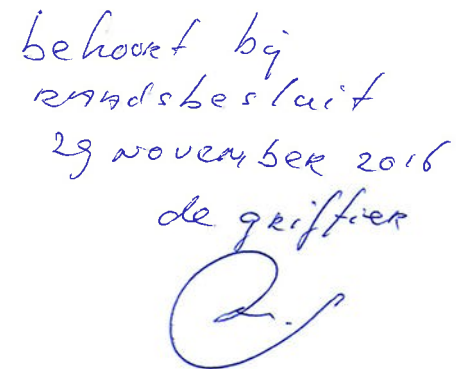 behoort bij
raadsbesluit
29 november 2016
de griffier